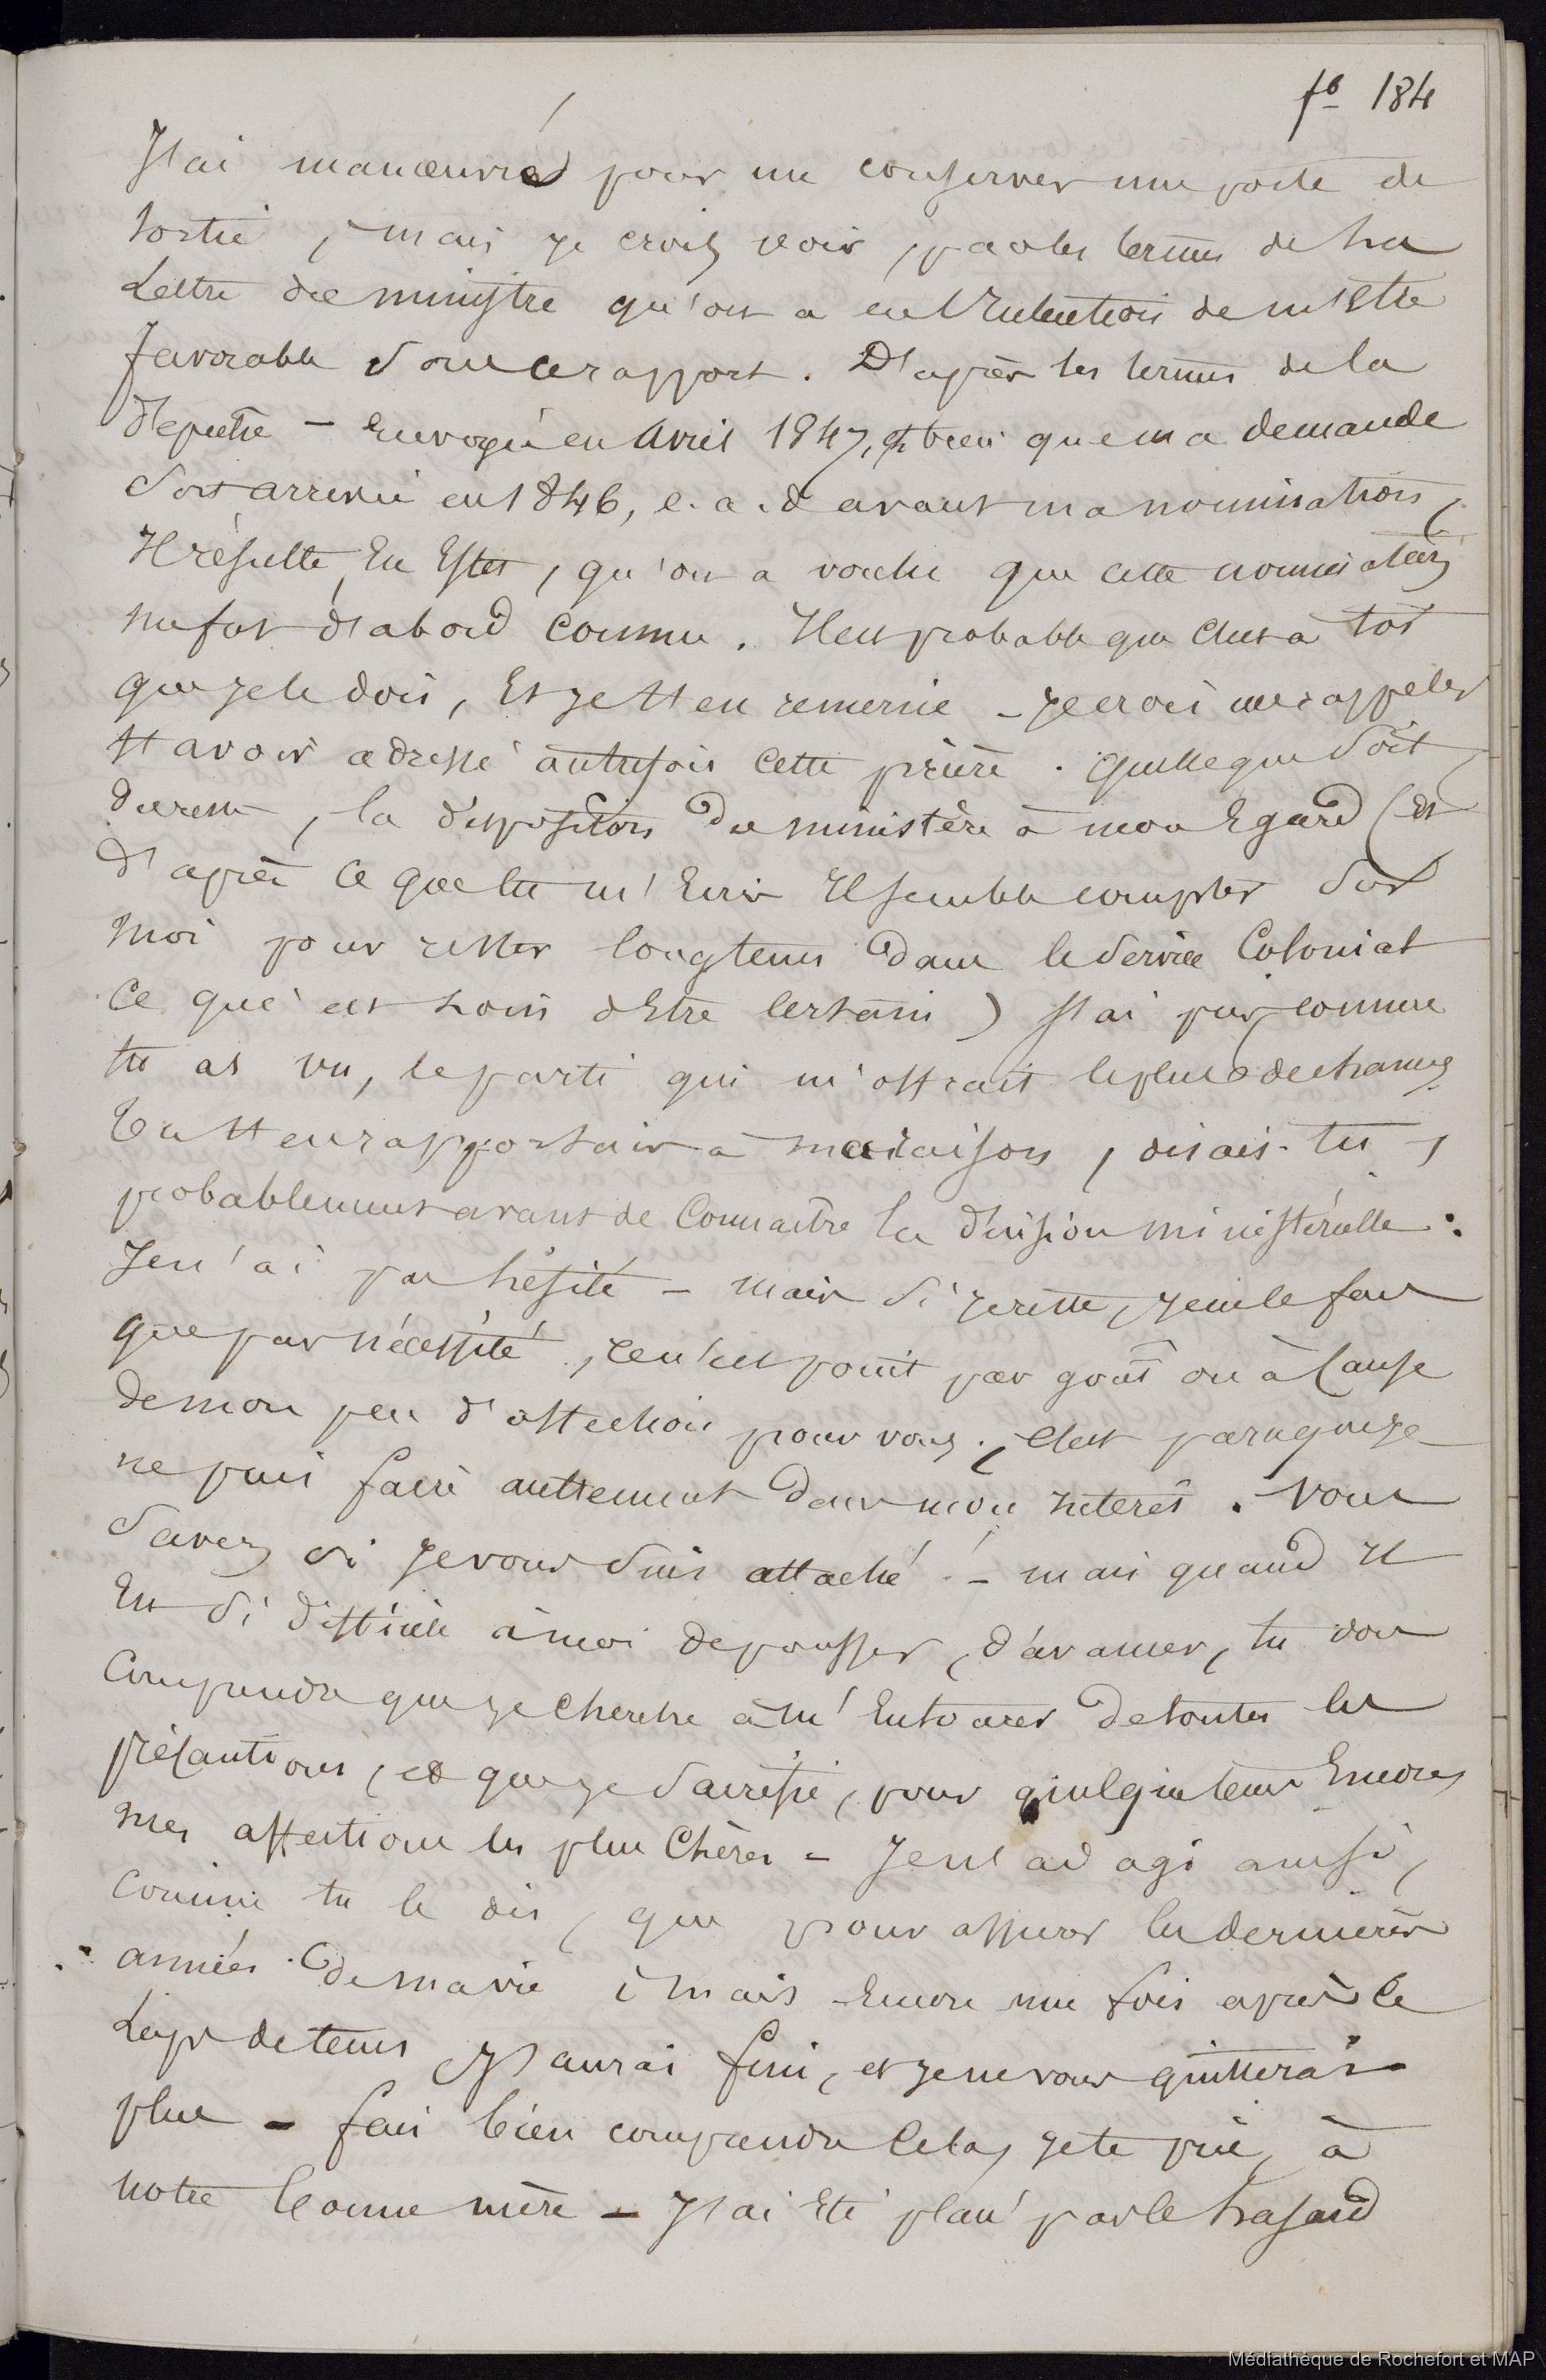 fo 184
J'ai manœuvré pour me conserver une porte de
sortie, mais je crois voir, par les termes de la
Lettre du ministre qu'on a eu l'intention de m'être
favorable sous ce rapport. D'après les termes de la
dépêche - envoyée en Avril 1847, bien que ma demande
soit arrivée en 1846, c.a.d avant ma nomination,
Il résulte, En Effet, qu'on a voulu que cette nomination
me fut d'abord connue. Il est probable que c'est à toi
que je le dois, Et je t'en remercie - je crois me rappeler
t'avoir adressé autrefois cette prière. Quelle que soit
du reste, la disposition du ministère à mon Egard (et
d'après ce que tu m'Ecris Il semble compter sur
moi pour rester longtems dans le service Colonial
ce qui est loin d'Etre certain) j'ai pris, comme
tu as vu, le parti qui m'offrait le plus de chances
Tu t'en rapportais à ma raison, disais-tu,
probablement avant de Connaître la décision ministérielle :
Je n'ai pas hésité - mais si je reste, je ne le fais
que par nécessité, ce n'est point par goût ou à Cause
de mon peu d'affection pour vous ; C'est parce que je
ne puis faire autrement dans mon intérêt. Vous
savez si je vous suis attaché ! - mais quand Il
Est si difficile à moi de pousser, d'avancer, tu dois
Comprendre que je cherche à m'Entourer de toutes les
précautions, et que je sacrifie, pour quelque tems Encore,
mes affections les plus Chères - Je n'ai agi ainsi,
comme tu le dis, que pour assurer les dernières
années de ma vie ; mais Encore une fois après ce
Laps de tems j'aurai fini, et je ne vous quitterai
plus - fais bien comprendre cela, je te prie, à
notre bonne mère - J'ai Eté placé par le hasard
Médiathèque de Rochefort et MAP